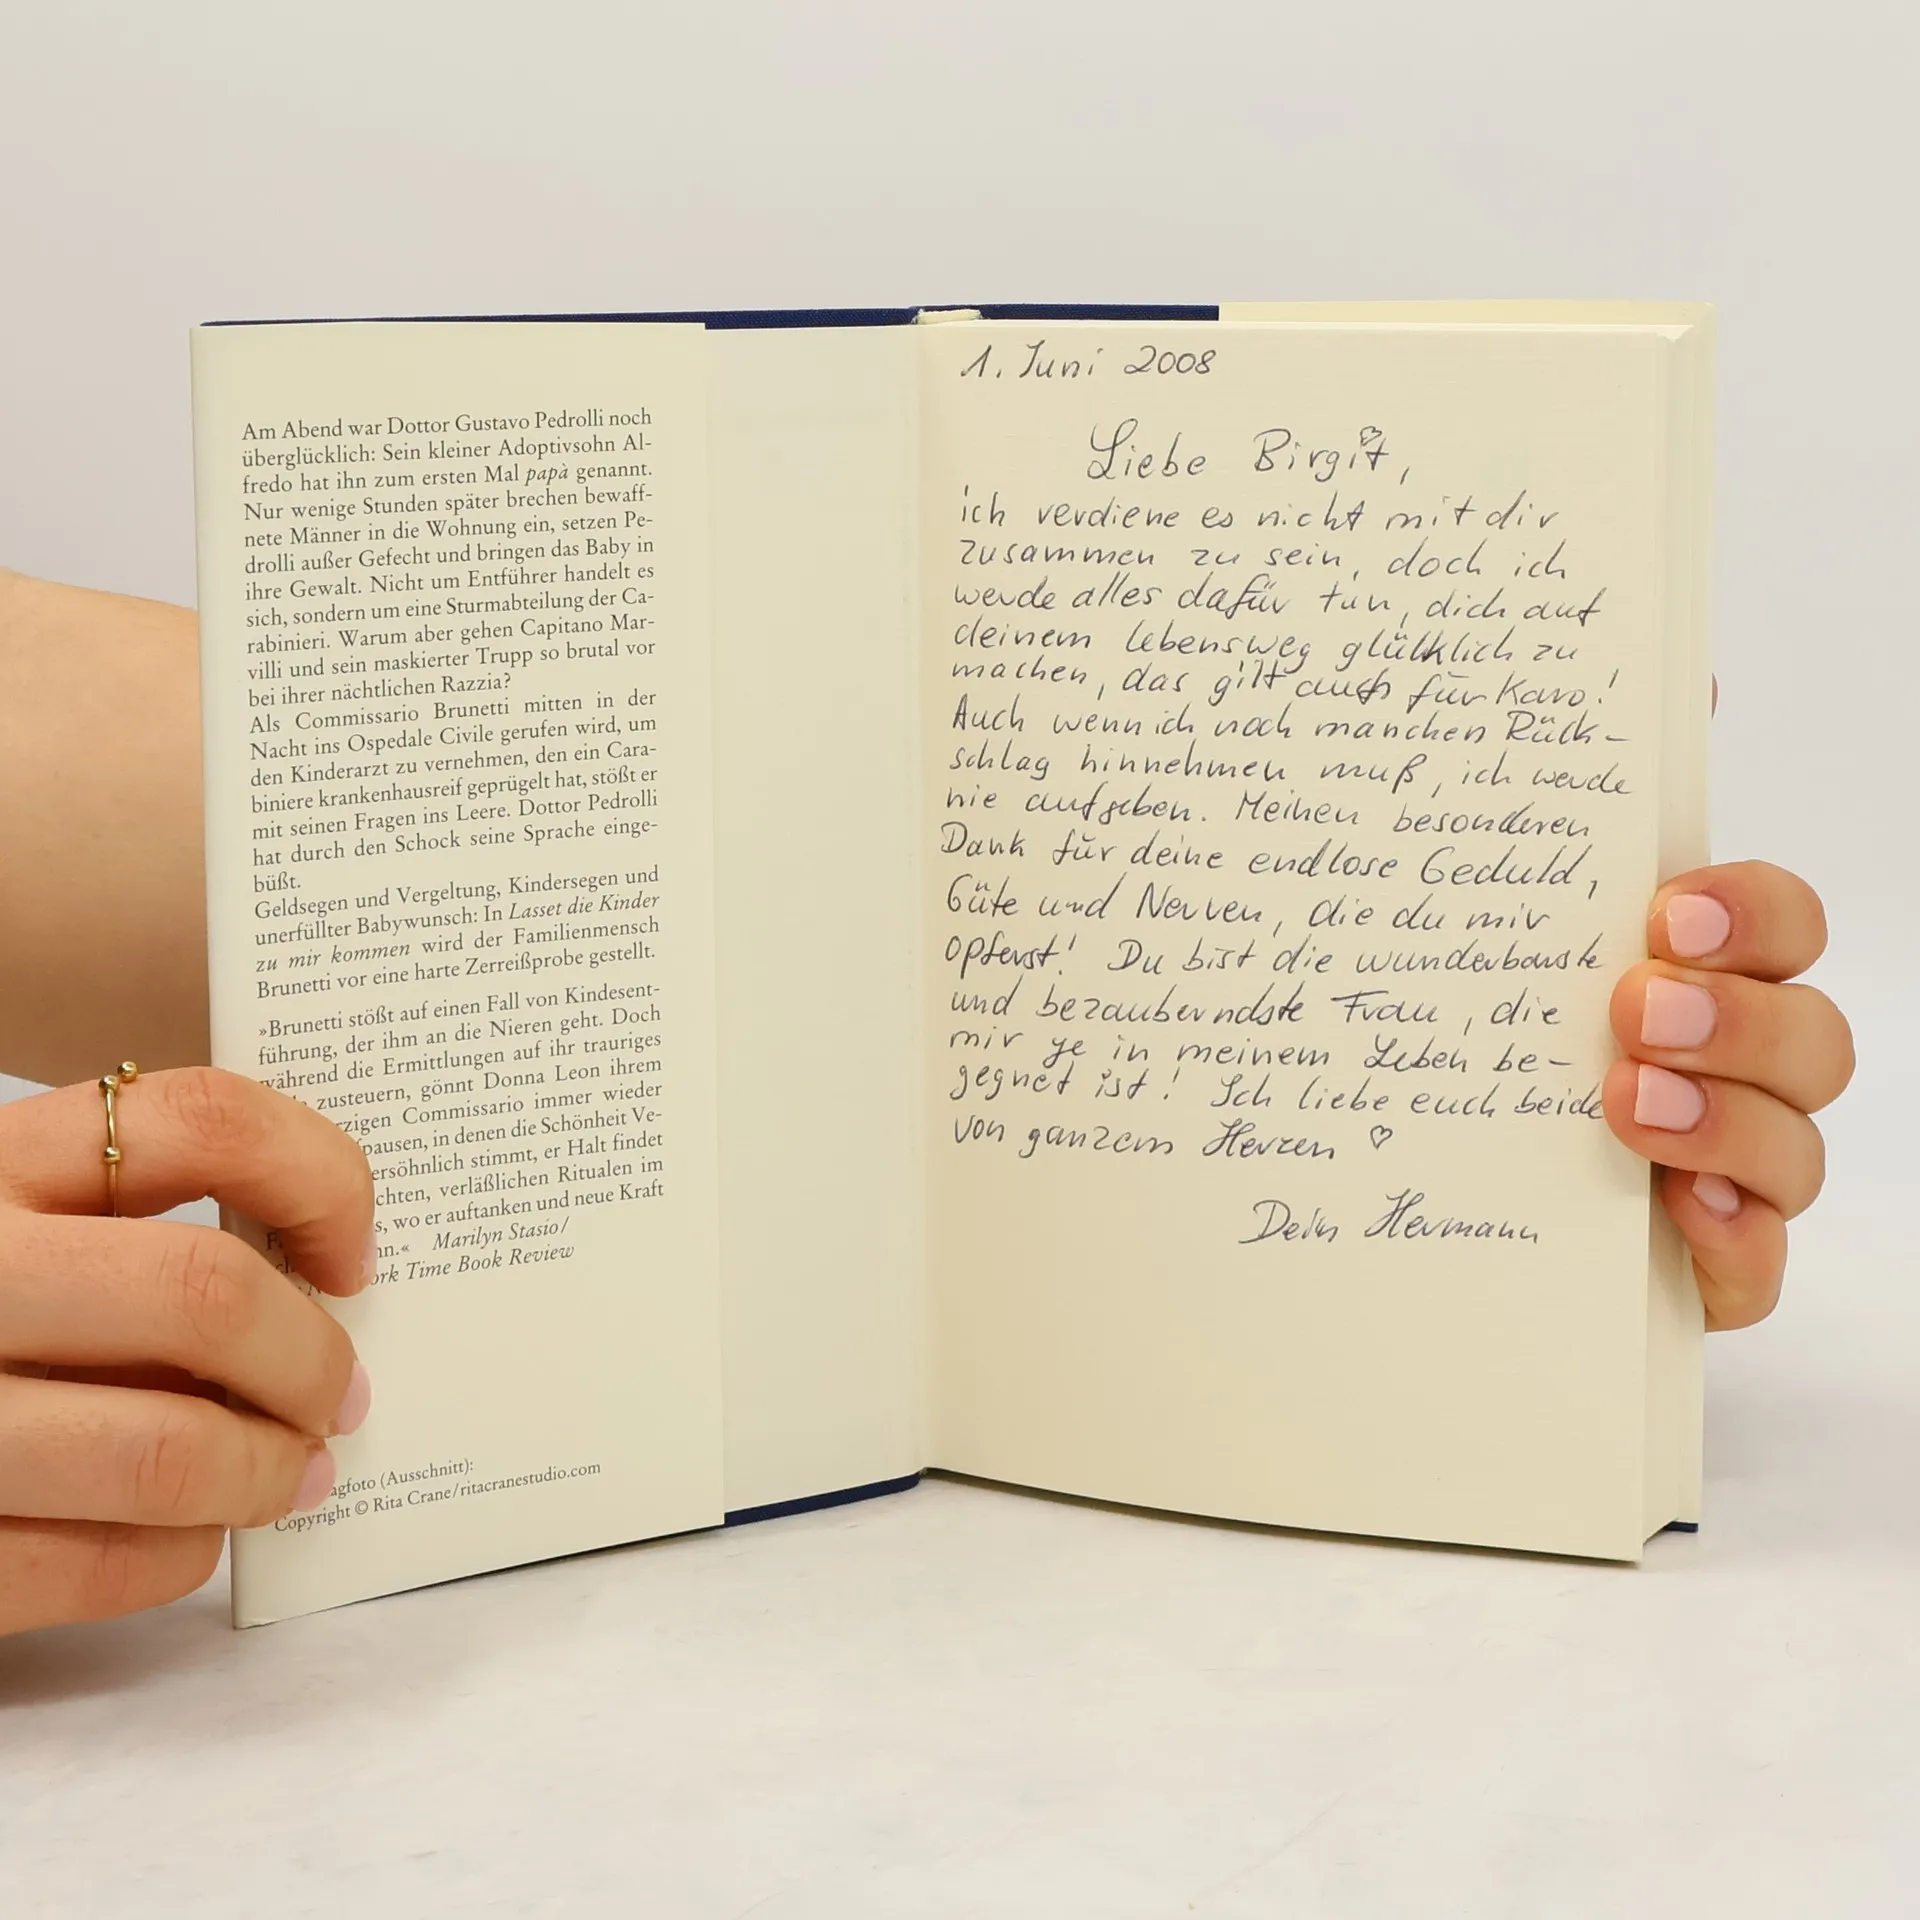 Am Abend war Dottor Gustavo Pedrolli noch
überglücklich: Sein kleiner Adoptivsohn Al-
fredo hat ihn zum ersten Mal papà genannt.
Nur wenige Stunden später brechen bewaff-
nete Männer in die Wohnung ein, setzen Pe-
drolli außer Gefecht und bringen das Baby in
ihre Gewalt. Nicht um Entführer handelt es
sich, sondern um eine Sturmabteilung der Ca-
rabinieri. Warum aber gehen Capitano Mar-
villi und sein maskierter Trupp so brutal vor
bei ihrer nächtlichen Razzia?
Als Commissario Brunetti mitten in der
Nacht ins Ospedale Civile gerufen wird, um
den Kinderarzt zu vernehmen, den ein Cara-
biniere krankenhausreif geprügelt hat, stößt er
mit seinen Fragen ins Leere. Dottor Pedrolli
hat durch den Schock seine Sprache einge-
büßt.
Geldsegen und Vergeltung, Kindersegen und
unerfüllter Babywunsch: In Lasset die Kinder
zu mir kommen wird der Familienmensch
Brunetti vor eine harte Zerreißprobe gestellt.
»Brunetti stößt auf einen Fall von Kindesent-
führung, der ihm an die Nieren geht. Doch
während die Ermittlungen auf ihr trauriges
zusteuern, gönnt Donna Leon ihrem
rzigen Commissario immer wieder
pausen, in denen die Schönheit Ve-
ersöhnlich stimmt, er Halt findet
chten, verläßlichen Ritualen im
s, wo er auftanken und neue Kraft
nn.« Marilyn Stasio/
ork Time Book Review
agfoto (Ausschnitt):
Copyright © Rita Crane/ritacranestudio.com
1. Juni 2008
Liebe Birgit,
ich verdiene es nicht mit dir
zusammen zu sein, doch ich
werde alles dafür tun, dich auf
deinem lebensweg glücklich zu
machen, das gilt auch für Karo!
Auch wenn ich noch manchen Rück-
schlag hinnehmen muß, ich werde
nie aufgeben. Meinen besonderen
Dank für deine endlose Geduld,
Güte und Nerven, die du mir
opferst! Du bist die wunderbarste
und bezauberndste Frau, die
mir je in meinem Leben be-
gegnet ist! Ich liebe euch beide
von ganzem Herzen ♡
Dein Hermann